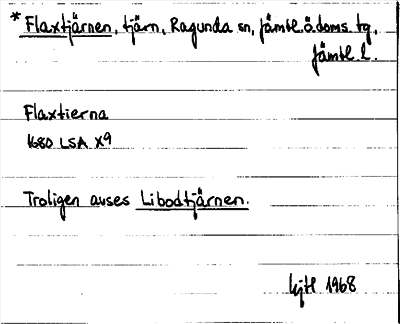 * Flaxtjärnen, tjärn, Ragunda sn, Jämtl. ö. doms. tg,
Jämtl. l.
Flaxtierna
1680 LSA X9
Troligen avses Libodtjärnen.
1968